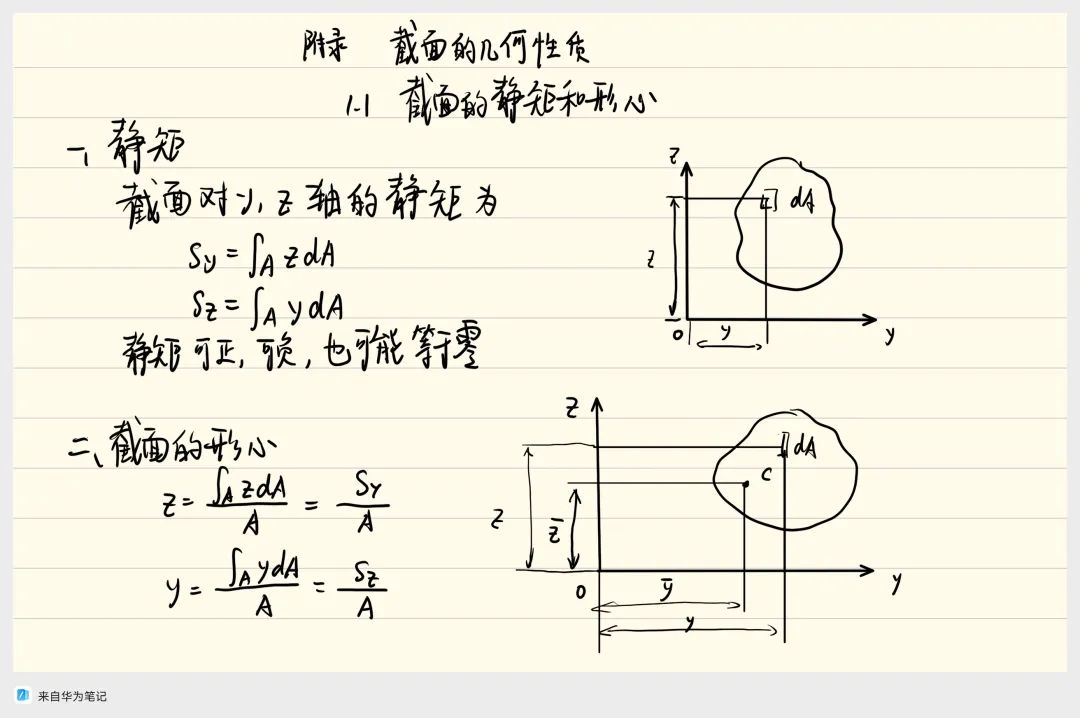 附录 截面的几何性质
1-1 截面的静矩和形心
一、静矩
截面对y, z轴的静矩为
Sy = ∫A z dA
Sz = ∫A y dA
静矩可正, 可负, 也可能等于零
z
dA
z
0
y
y
二、截面的形心
z = ∫A z dA / A = Sy / A
y = ∫A y dA / A = Sz / A
z
dA
c
z
z̄
0
ȳ
y
y
来自华为笔记